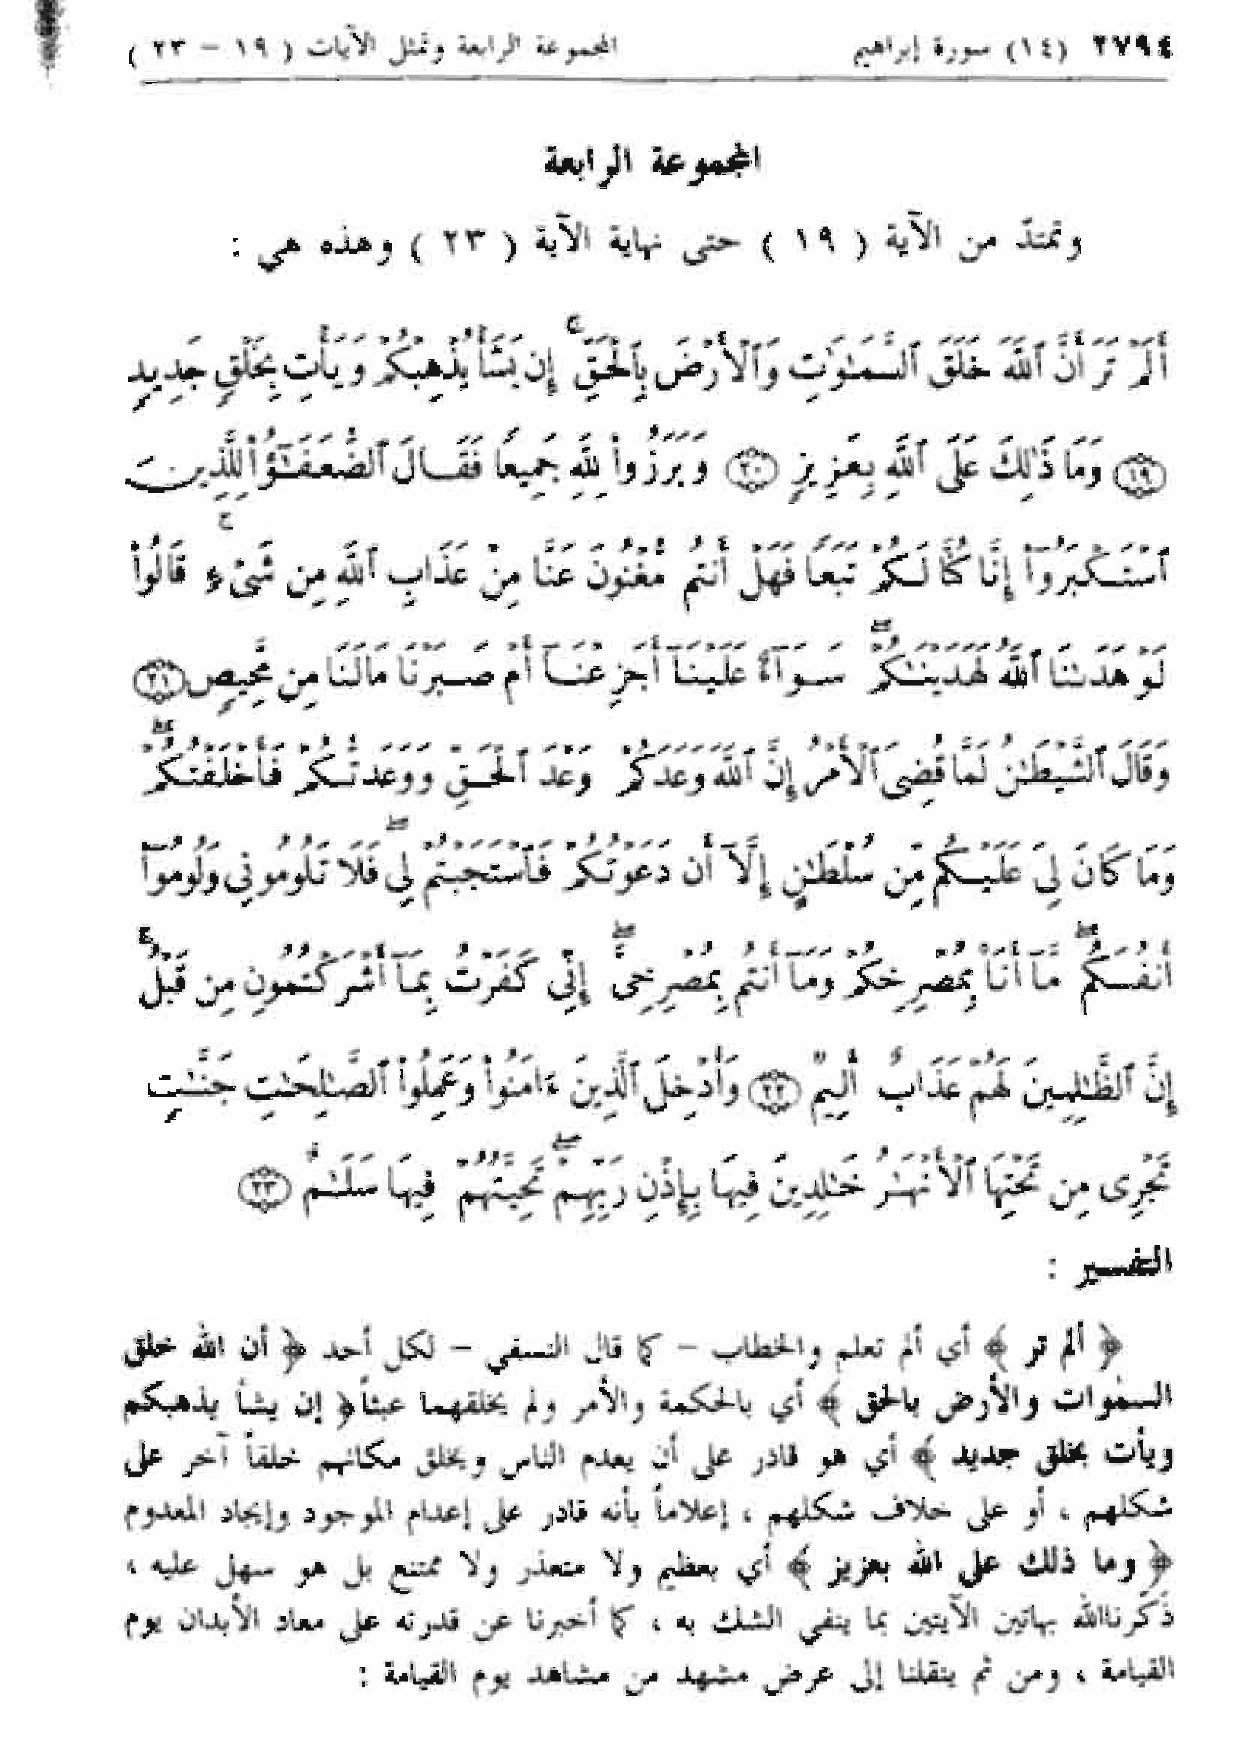 ٢٧٩٤ (١٤) سورة إبراهيم المجموعة الرابعة وتمثل الآيات ( ١٩ – ٢٣ )
المجموعة الرابعة
وتمتدّ من الآية ( ١٩ ) حتى نهاية الآية ( ٢٣ ) وهذه هي :
أَلَمْ تَرَ أَنَّ ٱللَّهَ خَلَقَ ٱلسَّمَٰوَٰتِ وَٱلْأَرْضَ بِٱلْحَقِّ ۚ إِن يَشَأْ يُذْهِبْكُمْ وَيَأْتِ بِخَلْقٍ جَدِيدٍ
﴿١٩﴾ وَمَا ذَٰلِكَ عَلَى ٱللَّهِ بِعَزِيزٍ ﴿٢٠﴾ وَبَرَزُوا۟ لِلَّهِ جَمِيعًا فَقَالَ ٱلضُّعَفَٰٓؤُا۟ لِلَّذِينَ
ٱسْتَكْبَرُوٓا۟ إِنَّا كُنَّا لَكُمْ تَبَعًا فَهَلْ أَنتُم مُّغْنُونَ عَنَّا مِنْ عَذَابِ ٱللَّهِ مِن شَىْءٍ ۚ قَالُوا۟
لَوْ هَدَىٰنَا ٱللَّهُ لَهَدَيْنَٰكُمْ ۖ سَوَآءٌ عَلَيْنَآ أَجَزِعْنَآ أَمْ صَبَرْنَا مَالَنَا مِن مَّحِيصٍ ﴿٢١﴾
وَقَالَ ٱلشَّيْطَٰنُ لَمَّا قُضِىَ ٱلْأَمْرُ إِنَّ ٱللَّهَ وَعَدَكُمْ وَعْدَ ٱلْحَقِّ وَوَعَدتُّكُمْ فَأَخْلَفْتُكُمْ ۖ
وَمَا كَانَ لِىَ عَلَيْكُم مِّن سُلْطَٰنٍ إِلَّآ أَن دَعَوْتُكُمْ فَٱسْتَجَبْتُمْ لِى ۖ فَلَا تَلُومُونِى وَلُومُوٓا۟
أَنفُسَكُم ۖ مَّآ أَنَا۠ بِمُصْرِخِكُمْ وَمَآ أَنتُم بِمُصْرِخِىَّ ۖ إِنِّى كَفَرْتُ بِمَآ أَشْرَكْتُمُونِ مِن قَبْلُ ۗ
إِنَّ ٱلظَّٰلِمِينَ لَهُمْ عَذَابٌ أَلِيمٌ ﴿٢٢﴾ وَأُدْخِلَ ٱلَّذِينَ ءَامَنُوا۟ وَعَمِلُوا۟ ٱلصَّٰلِحَٰتِ جَنَّٰتٍ
تَجْرِى مِن تَحْتِهَا ٱلْأَنْهَٰرُ خَٰلِدِينَ فِيهَا بِإِذْنِ رَبِّهِمْ ۖ تَحِيَّتُهُمْ فِيهَا سَلَٰمٌ ﴿٢٣﴾
التفسير :
﴿ ألم تر ﴾ أي ألم تعلم والخطاب – كما قال النسفي – لكل أحد ﴿ أن الله خلق
السمٰوات والأرض بالحق ﴾ أي بالحكمة والأمر ولم يخلقهما عبثاً ﴿ إن يشأ يذهبكم
ويأت بخلق جديد ﴾ أي هو قادر على أن يعدم الناس ويخلق مكانهم خلقاً آخر على
شكلهم ، أو على خلاف شكلهم ، إعلاماً بأنه قادر على إعدام الموجود وإيجاد المعدوم
﴿ وما ذلك على الله بعزيز ﴾ أي بعظيم ولا متعذر ولا ممتنع بل هو سهل عليه ،
ذَكّرنا الله بهاتين الآيتين بما ينفي الشك به ، كما أخبرنا عن قدرته على معاد الأبدان يوم
القيامة ، ومن ثم ينقلنا إلى عرض مشهد من مشاهد يوم القيامة :